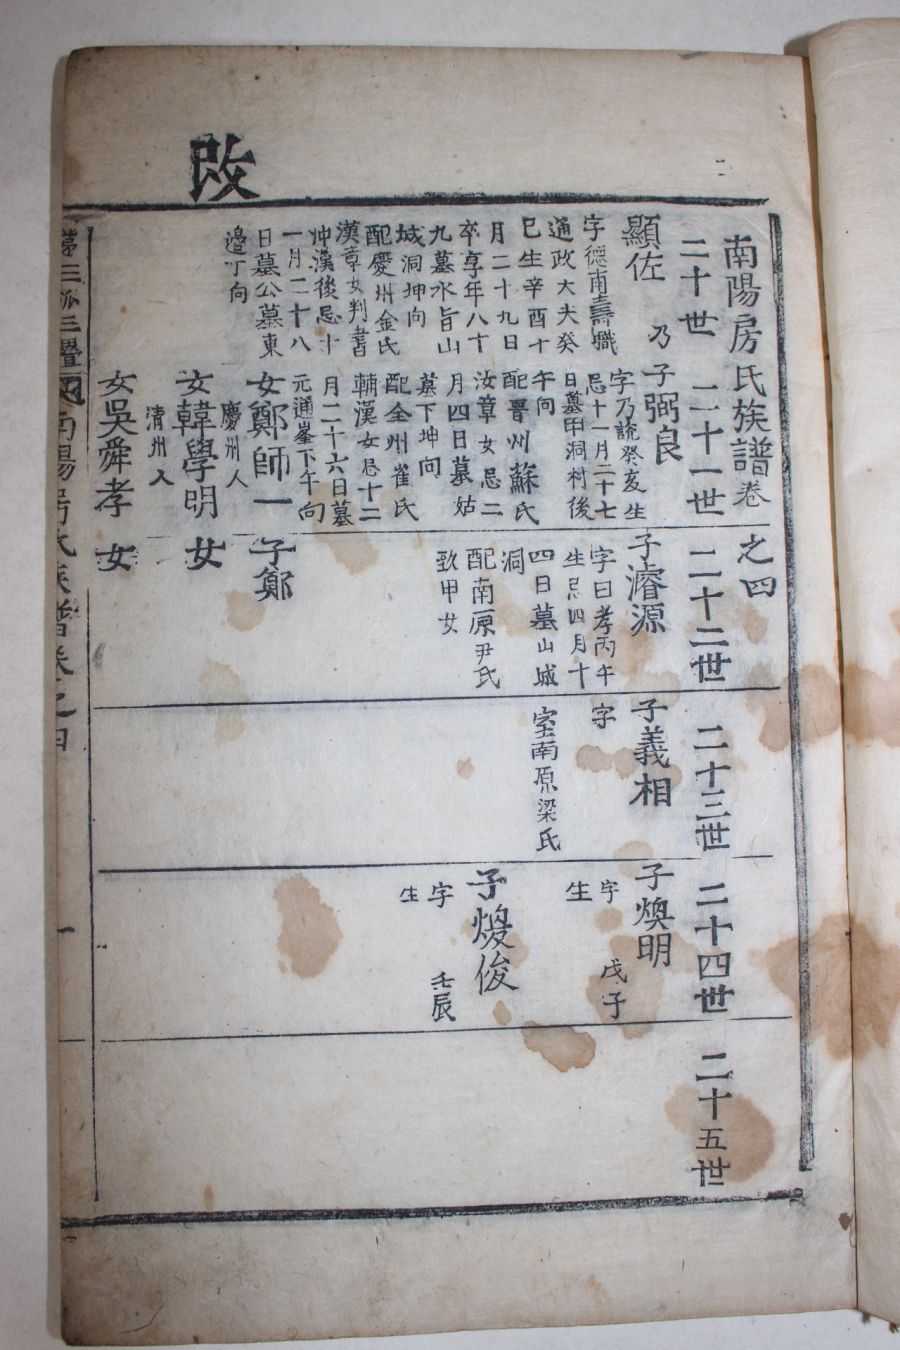 改
南陽房氏族譜卷之四
二十世
二十一世
二十二世
二十三世
二十四世
二十五世
顯佐
乃
字德南壽職
通政大夫癸
巳生辛酉十
月二十九日
卒享年八十
九墓水旨山
城洞坤向
配慶州金氏
漢章女判書
沖漢後忌十
一月二十八
日墓公墓東
邊丁向
子弼良
字乃說癸亥生
忌十一月二十七
日墓甲洞村後
午向
配晋州蘇氏
汝章女忌二
月四日墓姑
墓下坤向
配全州崔氏
輔漢女忌十二
月二十六日墓
元通峯下午向
女鄭師一
慶州人
女韓學明
清州人
女吳舜孝
子濬源
字曰孝丙午
生忌四月十
四日墓山城
洞
配南原尹氏
致甲女
子鄭
女
女
子義相
字
室南原梁氏
子煥明
字
戊子
生
子煖俊
字
壬辰
生
南陽房氏族譜卷之四
一